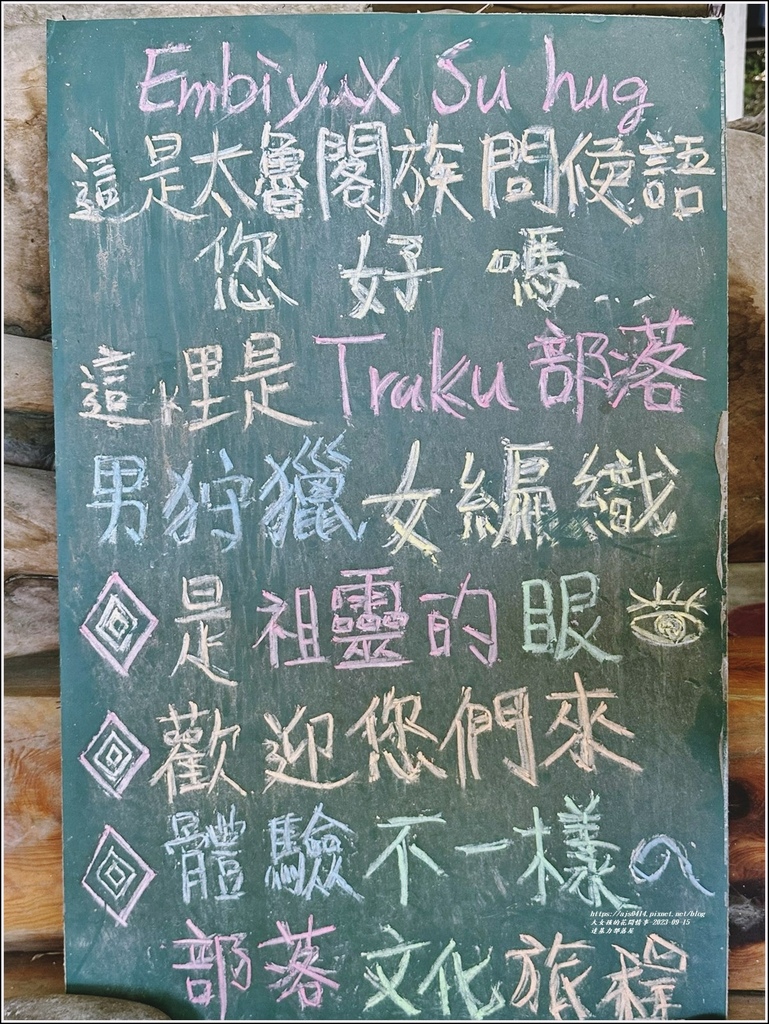 Embiyax Su hug
這是太魯閣族問侯語
您好嗎...
這裡是Traku部落
男狩獵女編織
是祖靈的眼
歡迎您們來
體驗不一樣～
部落文化旅程
https://ajs0414.pixnet.net/blog
大女孩的花問情事 2023-09-15
達基力部落屋